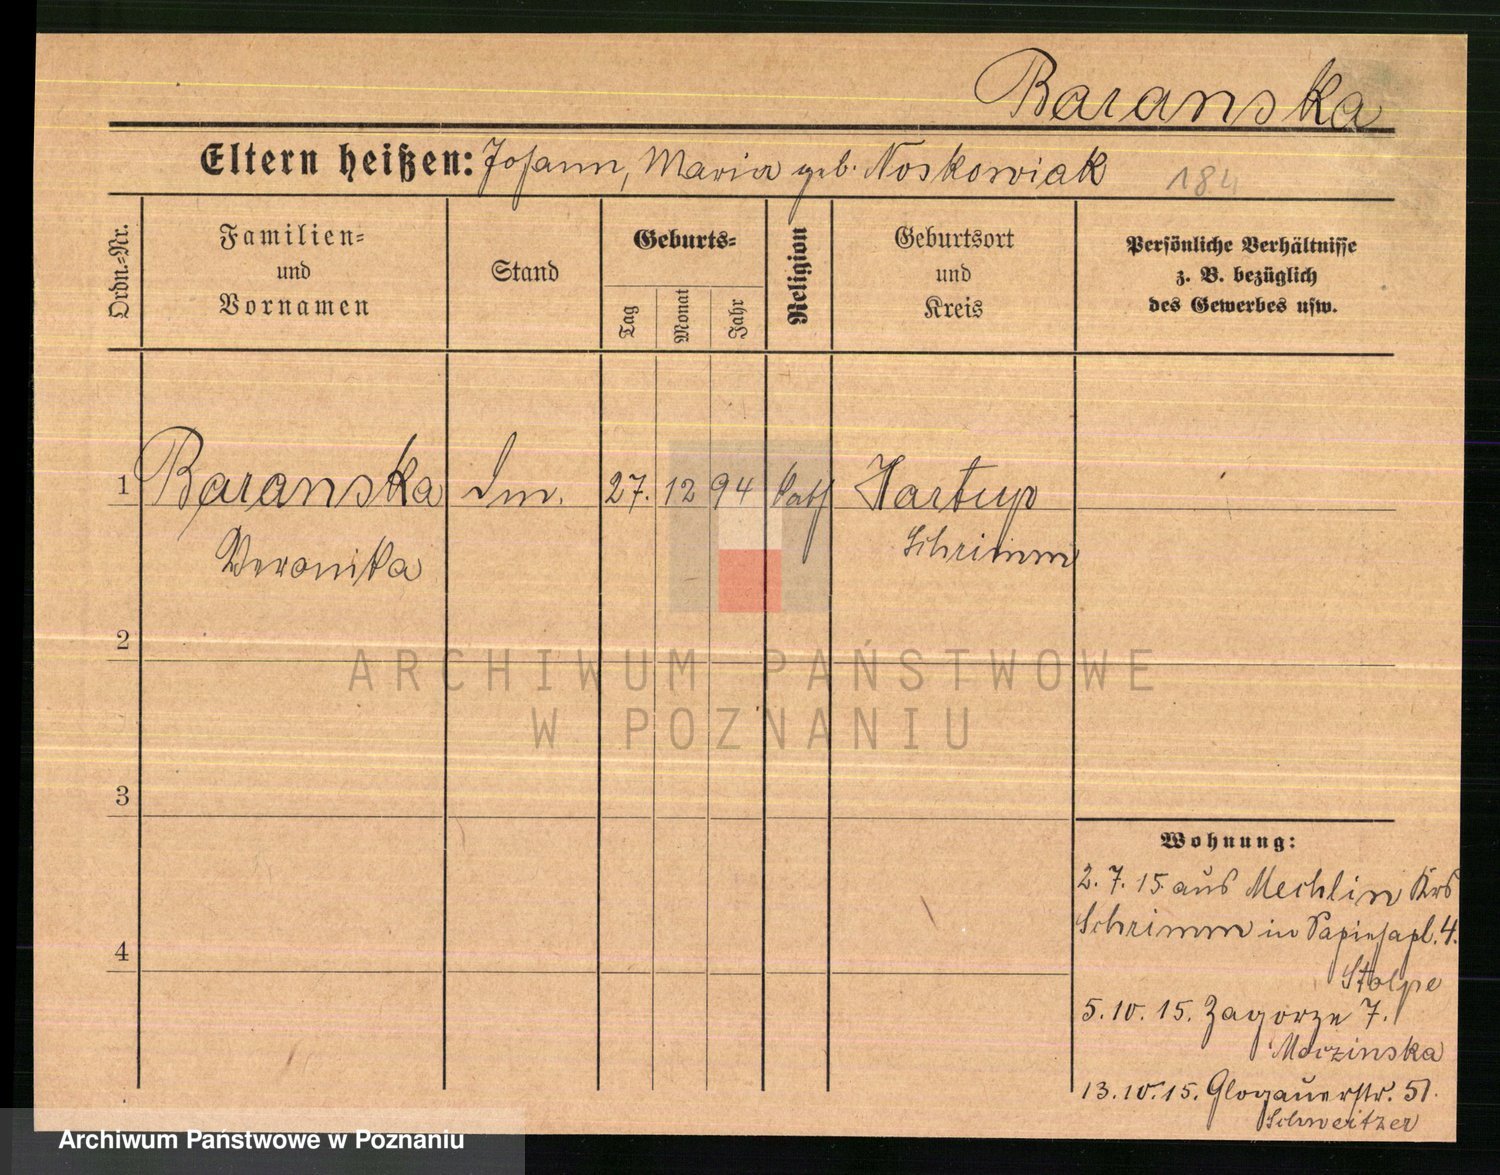 Baranska
Eltern heißen: Johann, Maria geb. Noskowiak 184
Ordn.-Nr.
Familien-
und
Vornamen
Stand
Geburts-
Tag
Monat
Jahr
Religion
Geburtsort
und
Kreis
Persönliche Verhältnisse
z. B. bezüglich
des Gewerbes usw.
1 Baranska 27. 12 94 Kath Hartup
Veronika Schrimm
2
ARCHIWUM PAŃSTWOWE
W POZNANIU
3
Wohnung:
2. 7. 15 aus Mechlin Krs
Schrimm in Sapiehapl. 4.
4
Stolpe
5. 10. 15. Zagorze 7.
Moczinska
13. 10. 15. Glogauerstr. 51.
Schweitzer
Archiwum Państwowe w Poznaniu